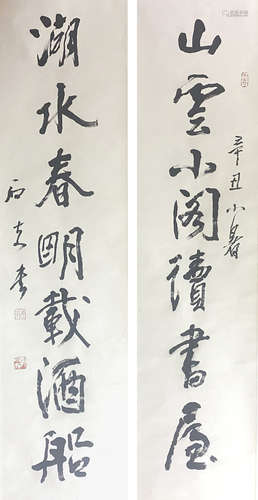 山雲小閣讀書屋
辛丑小暑
湖水春明載酒船